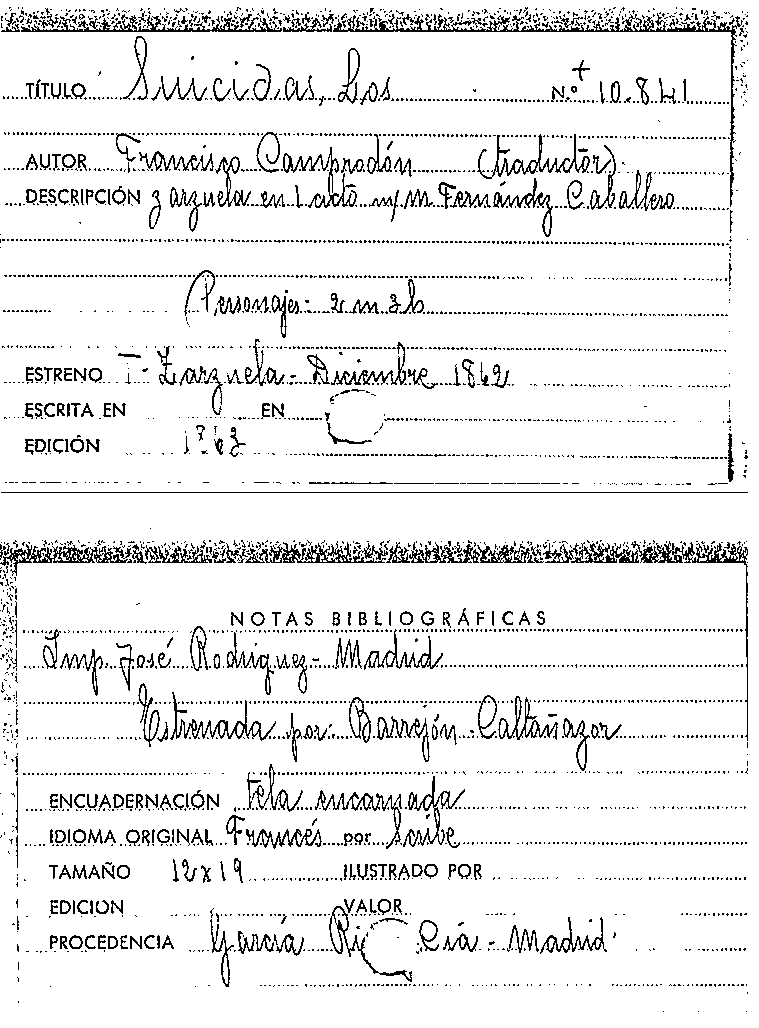 TÍTULO Suicidas, Los N.º + 10.841
AUTOR Francisco Camprodón (traductor)
DESCRIPCIÓN zarzuela en 1 acto m/m Fernández Caballero
Personajes: 2 m 3 h
ESTRENO T- Zarzuela - Diciembre 1862
ESCRITA EN EN
EDICIÓN 1863
NOTAS BIBLIOGRÁFICAS
Imp. José Rodriguez - Madrid
Estrenada por: Barrejón - Caltañazor
ENCUADERNACIÓN tela encarnada
IDIOMA ORIGINAL Francés por Scribe
TAMAÑO 12 x 19 ILUSTRADO POR
EDICION VALOR
PROCEDENCIA García Cía - Madrid